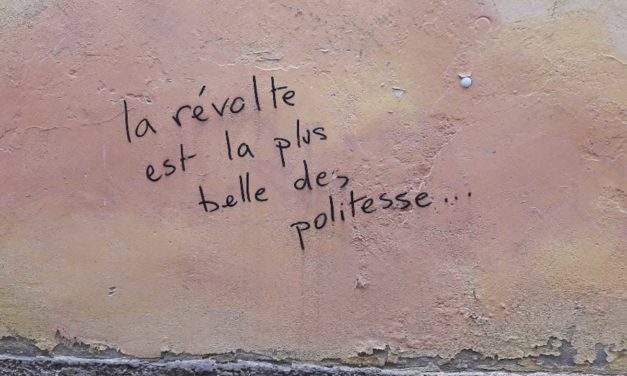 la révolte
est la plus
belle des
politesse...